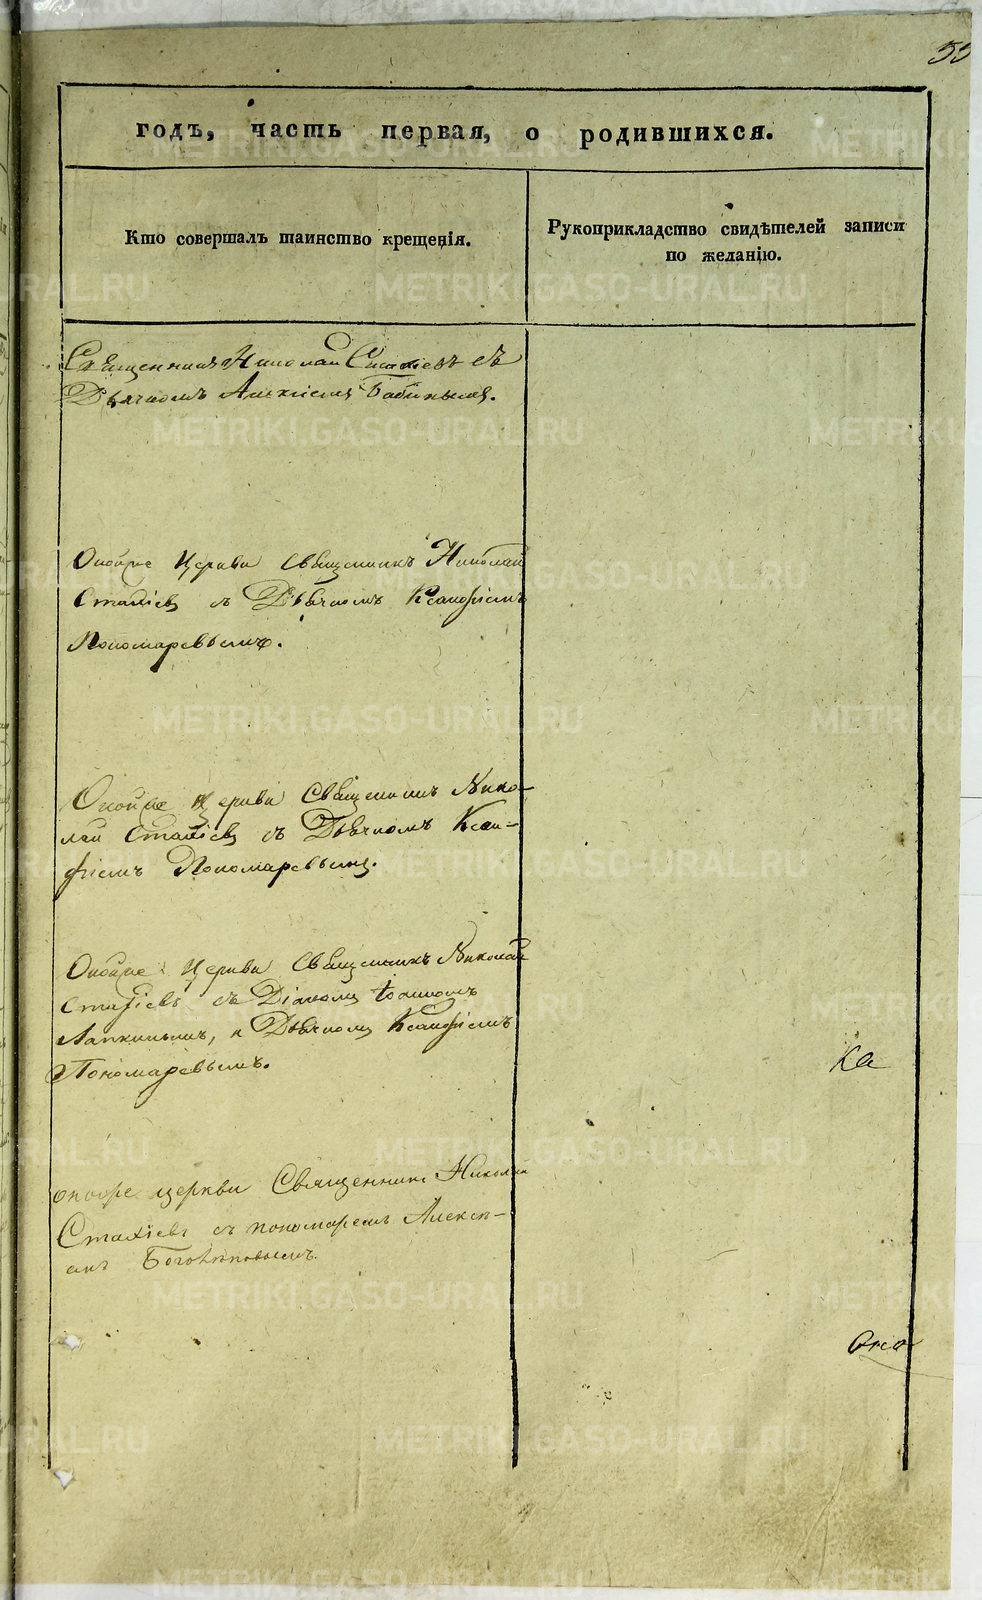 55
годъ, часть первая, о родившихся.
Кто совершалъ таинство крещенія.
Рукоприкладство свидѣтелей записи
по желанію.
Священникъ Николай Стахіевъ съ
Дьячкомъ Алексіемъ Бабинымъ.
Оной же Церкви Священникъ Николай
Стахіевъ съ Дьячкомъ Ксанфіемъ
Пономаревымъ.
Оной же Церкви Священникъ Нико-
лай Стахіевъ съ Дьячкомъ Ксан-
фіемъ Пономаревымъ.
Оной же Церкви Священникъ Николай
Стахіевъ съ Діакономъ Іоанномъ
Лапкинымъ, и Дьячкомъ Ксанфіемъ
Пономаревымъ.
Ка
оной же церкви Священникъ Николай
Стахіевъ съ пономаремъ Алексѣ-
емъ Боголѣповымъ.
METRIKI.GASO-URAL.RU